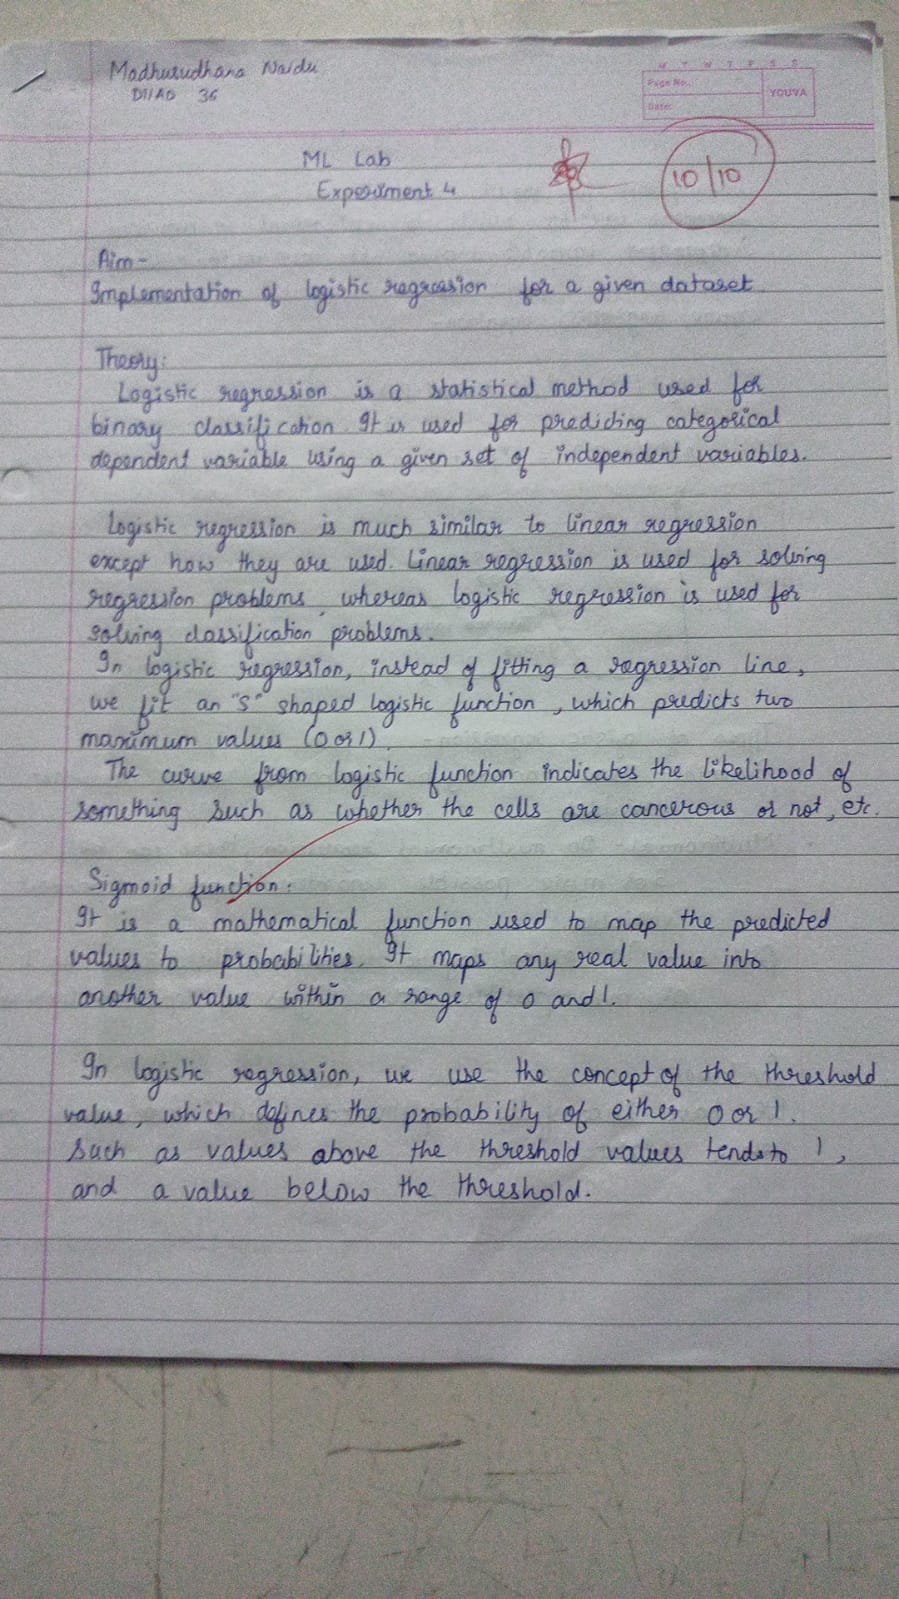 Madhusudhana Naidu
D11AD 36
M T W T F S S
Page No.:
Date:
YOUVA
ML Lab
Experiment 4
10/10
Aim-
Implementation of logistic regression for a given dataset
Theory:
Logistic regression is a statistical method used for
binary classification. It is used for predicting categorical
dependent variable using a given set of independent variables.
Logistic regression is much similar to linear regression
except how they are used. Linear regression is used for solving
regression problems, whereas logistic regression is used for
solving classification problems.
In logistic regression, instead of fitting a regression line,
we fit an "S" shaped logistic function, which predicts two
maximum values (0 or 1).
The curve from logistic function indicates the likelihood of
something such as whether the cells are cancerous or not, etc.
Sigmoid function:
It is a mathematical function used to map the predicted
values to probabilities. It maps any real value into
another value within a range of 0 and 1.
In logistic regression, we use the concept of the threshold
value, which defines the probability of either 0 or 1.
Such as values above the threshold values tends to 1,
and a value below the threshold.